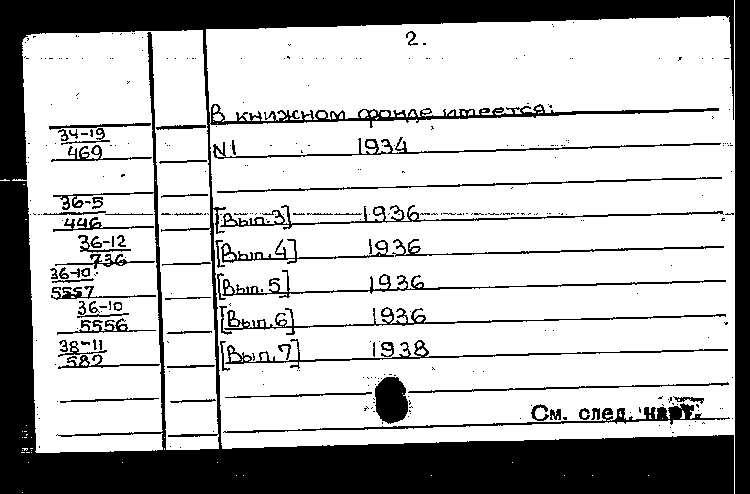 2.
В книжном фонде имеется:
34-19
469 N1 1934
36-5
446 [Вып.3] 1936
36-12
736 [Вып.4] 1936
36-10
5557 [Вып.5] 1936
36-10
5556 [Вып.6] 1936
38-11
582 [Вып.7] 1938
См. след. карт.